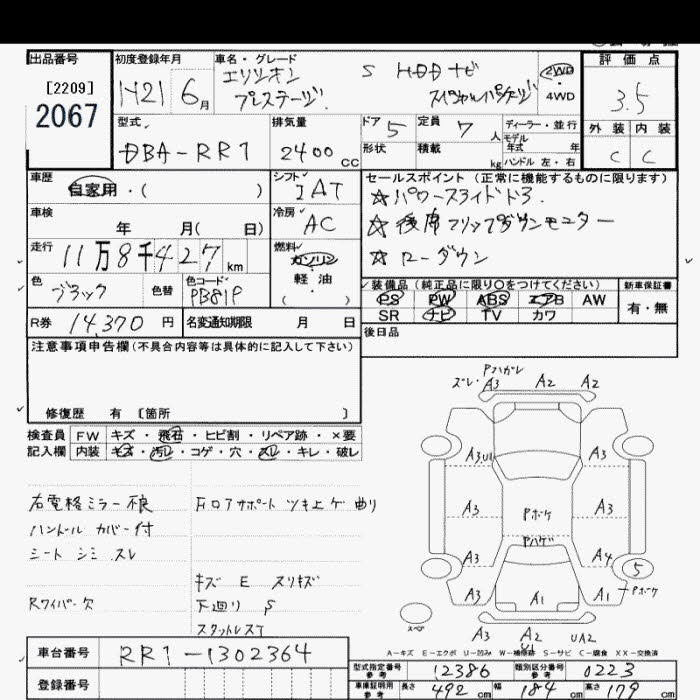 出品番号
[2209]
2067
初度登録年月
H21 6月
車名・グレード
エリシオン S HDDナビ
プレステージ スペシャルパッケージ
2WD
4WD
評価点
3.5
外装 内装
C C
型式
DBA-RR1
排気量
2400 cc
ドア 5
定員 7 人
形状
積載 kg
ディーラー・並行
モデル年式 年
ハンドル 左・右
車歴
自家用・( )
シフト
IAT
車検
年 月( 日)
冷房
AC
走行
11万8千427 km
燃料
ガソリン
軽油
( )
色
ブラック
色替
色コード
PB81P
R券 14,370 円
名変通知期限 月 日
セールスポイント(正常に機能するものに限ります)
☆パワースライドドア.
☆後席フリップダウンモニター
☆ローダウン
装備品(純正品に限り○をつけてください)
PS PW ABS エアB AW
SR ナビ TV カワ
新車保証書
有・無
後日品
注意事項申告欄(不具合内容等は具体的に記入して下さい)
修復歴 有 〔箇所 〕
検査員記入欄
FW キズ・飛石・ヒビ割・リペア跡・×要
内装 キズ・汚レ・コゲ・穴・スレ・キレ・破レ
右電格ミラー不良
ハンドルカバー付
シート シミ スレ
Rワイパー欠
Fロアサポート ツキ上ゲ 曲り
キズ E スリキズ
下廻り S
スタットレスT
Pハガレ
ズレ・A3 A2 A2
A3U1 A3
A3 Pボケ A3
Pハゲ
A3 A4
5
A3 A1 A1 Pボケ
スペア
A3 A2 UA2
U1
A-キズ E-エクボ U-凹み W-補修跡 S-サビ C-腐食 XX-交換済
車台番号 RR1-1302364
登録番号
型式指定番号参考 12386
類別区分番号参考 0223
車庫証明用参考 長さ 492 cm 幅 184 cm 高さ 179 cm